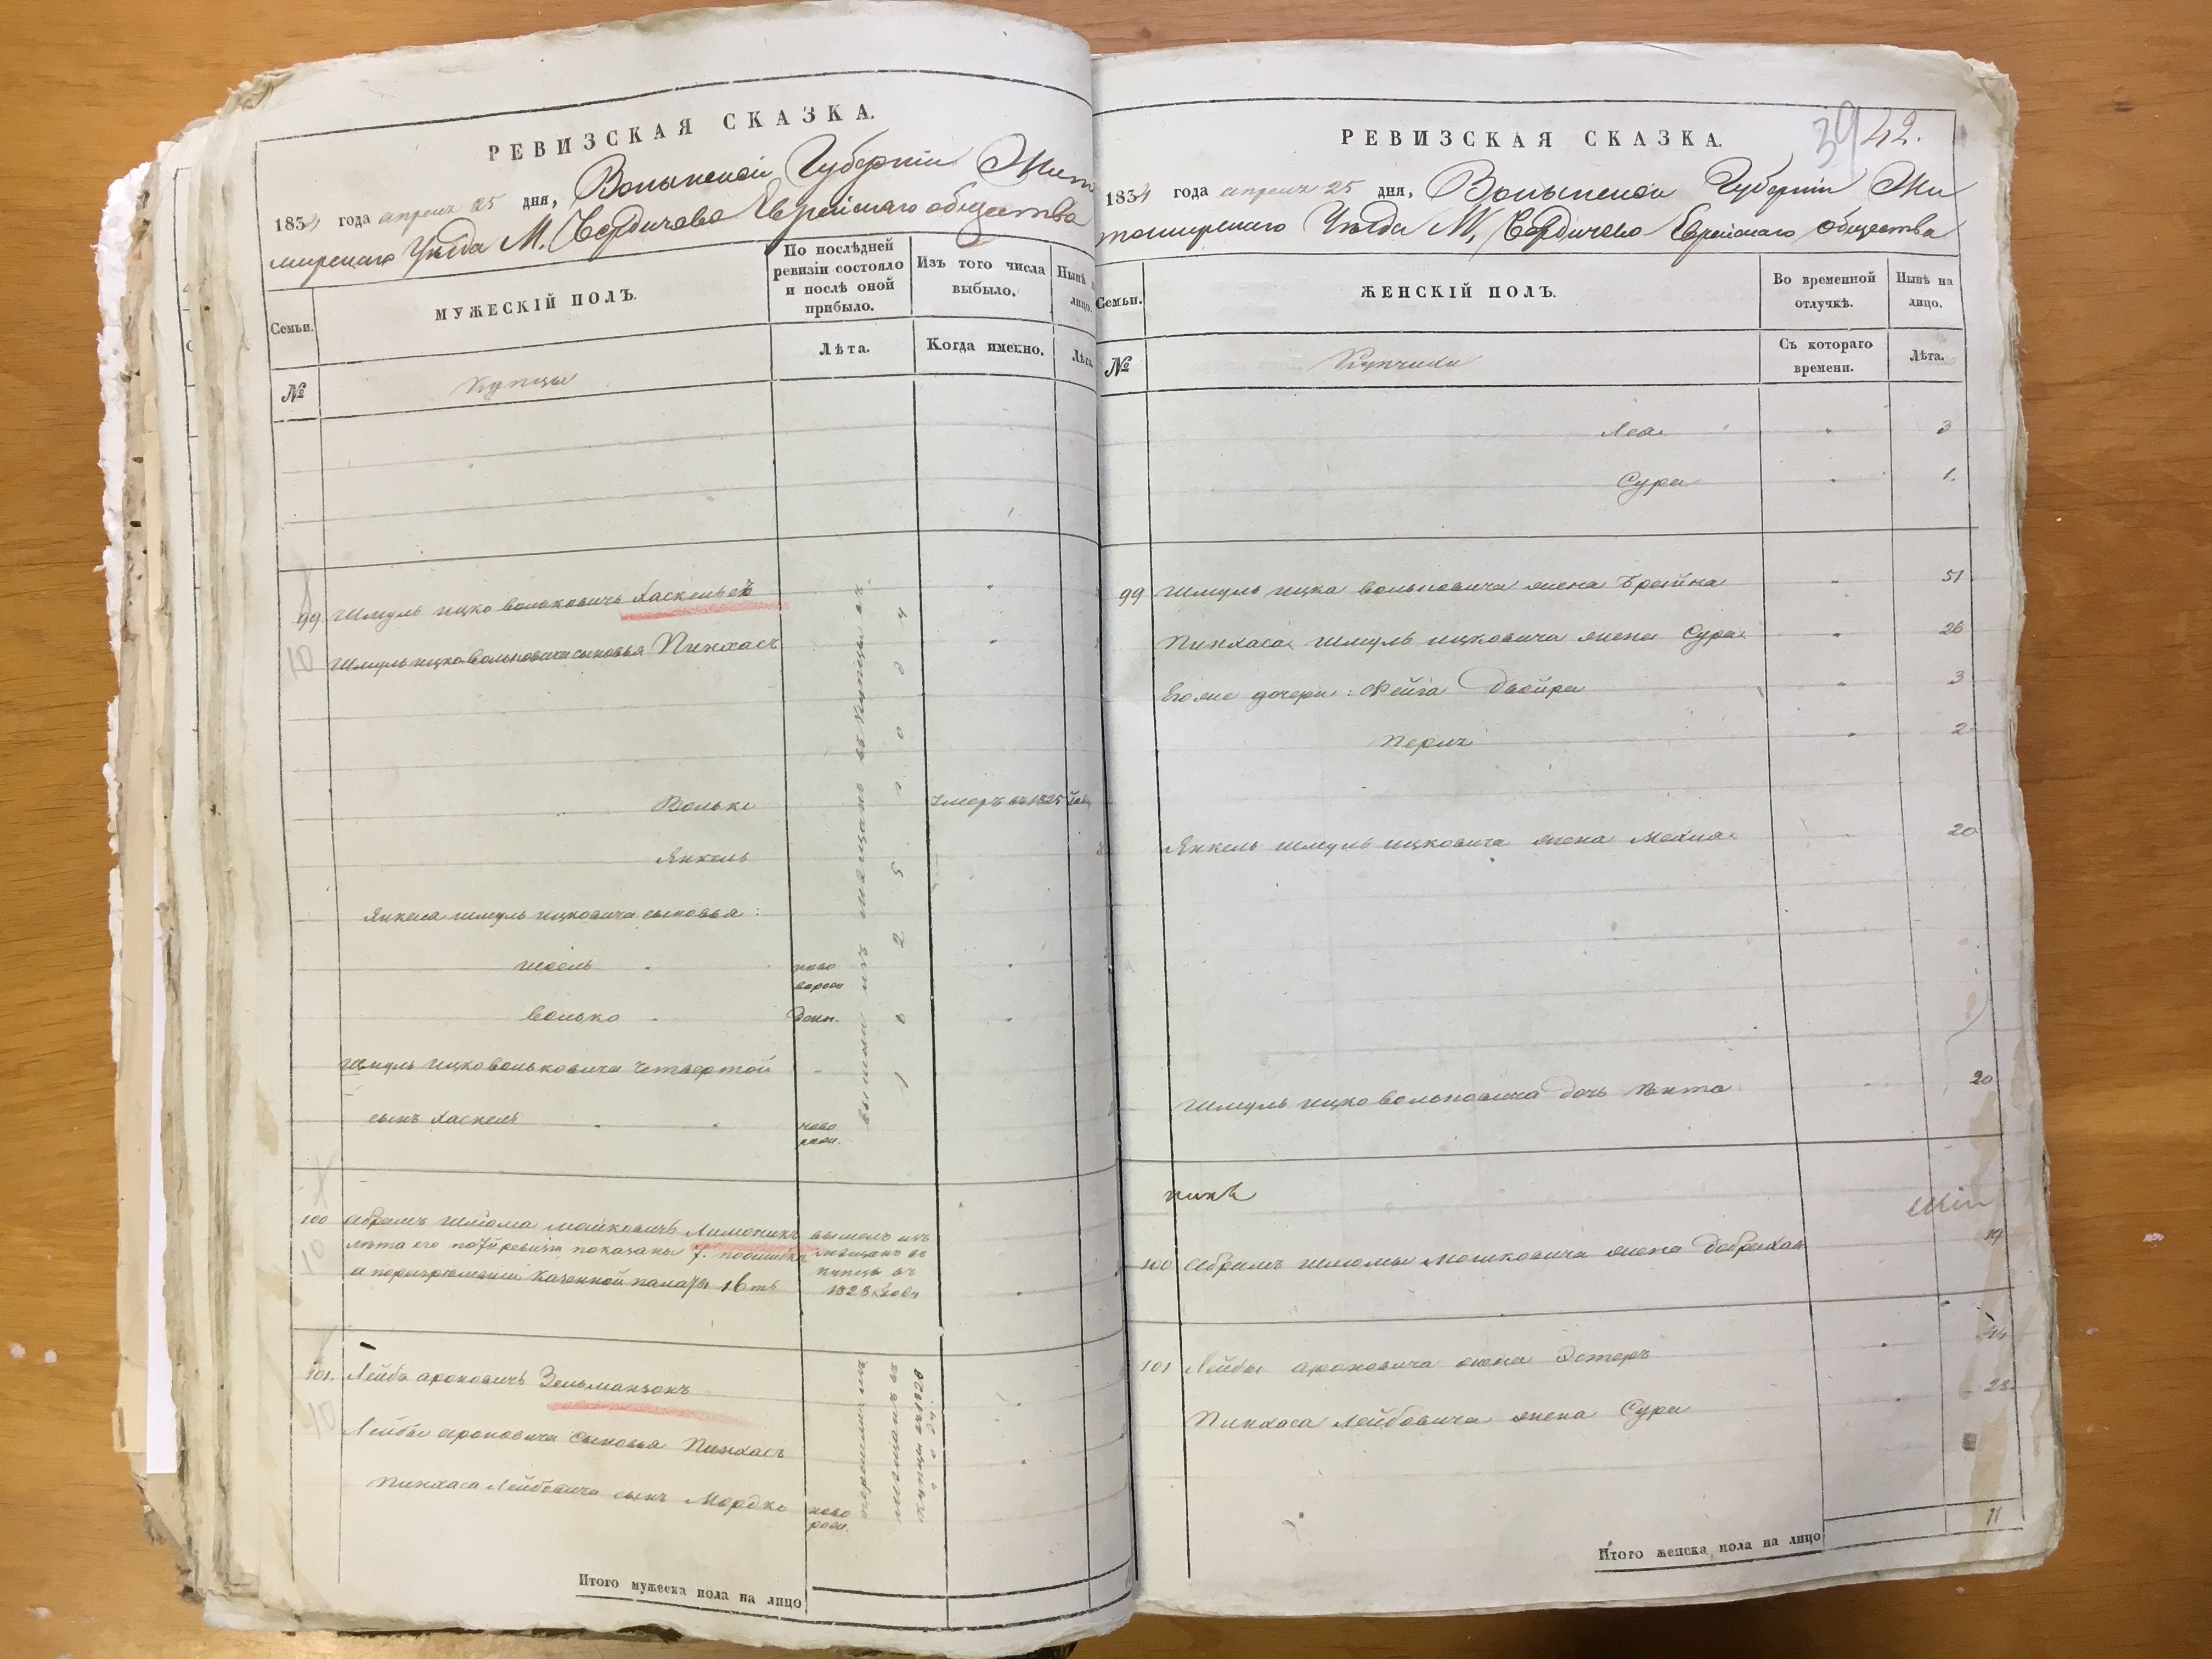 РЕВИЗСКАЯ СКАЗКА.
1834 года апреля 25 дня, Волынской Губернии Жит
мирскаго Уезда М. Бердичева Еврейскаго общества
Семьи.
МУЖЕСКІЙ ПОЛЪ.
По послѣдней ревизіи состояло и послѣ оной прибыло.
Изъ того числа выбыло.
Нынѣ
лицо.
№
Купцы
Лѣта.
Когда именно.
Лѣта
99 Шмуль ицко вольковичь Хаскельсъ
10 Шмуль ицко вольковича сыновья Пинхасъ
Волько
Умеръ въ 1825 году
Янкель
Янкеля шмуль ицковича сыновья :
ново
волько
Шмуль ицко вольковича четвертой
сынъ хаскель
ново
рожд.
вышли изъ мещанъ въ купцы въ
1 8 2 5 г о д у
100 Абрамъ шлома мошковичь Лимоникъ
вышелъ изъ
лѣта его по 7й ревизіи показаны 7. по ошибкѣ
мещанъ въ
10
и по разрешению Казенной палаты 16ть
купцы въ
1828 году
101. Лейба ароновичь Зельманзонъ
10
Лейбы ароновича сыновья Пинхасъ
Пинхаса Лейбовича сынъ Мордко
ново
рожд.
мещанъ въ
купцы въ 1828
году
Итого мужеска пола на лицо
РЕВИЗСКАЯ СКАЗКА.
39 42.
1834 года апреля 25 дня, Волынской Губернии Жи
томирскаго Уезда М. Бердичева Еврейскаго общества
Семьи.
ЖЕНСКІЙ ПОЛЪ.
Во временной отлучкѣ.
Нынѣ на лицо.
№
Купчихи
Съ котораго времени.
Лѣта.
Лея 3
Сура 1.
99 Шмуль ицка вольковича жена Брейна 51
Пинхаса шмуль ицковича жена Сура 26
Его же дочери : Фейга Двойра 3
Перль 2
Янкель шмуль ицковича жена Мехля 20
Шмуль ицко вольковича дочь Ента 20
100 Абрамъ шломы мошковича жена Добрыхая 19
101 Лейбы ароновича жена Эстеръ 44
Пинхаса Лейбовича жена Сура 23
Итого женска пола на лицо
11